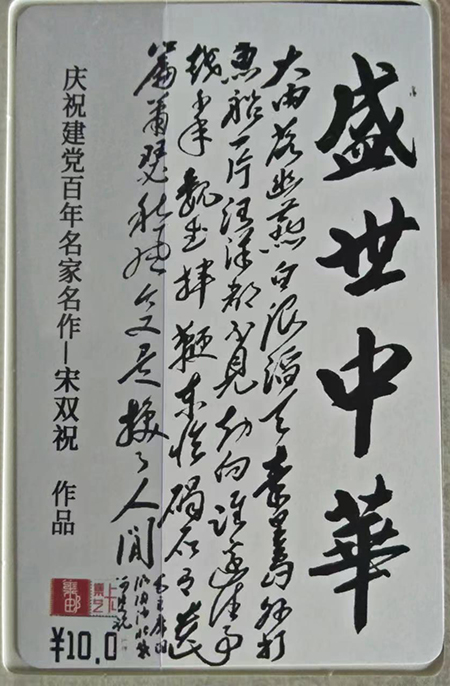 盛世中華
大雨落幽燕白浪滔天秦皇島外打
魚船一片汪洋都不見知向誰邊往事
越千年魏武揮鞭東臨碣石有遺
篇蕭瑟秋風今又是換了人間
庆祝建党百年名家名作—宋双祝 作品
¥10.0